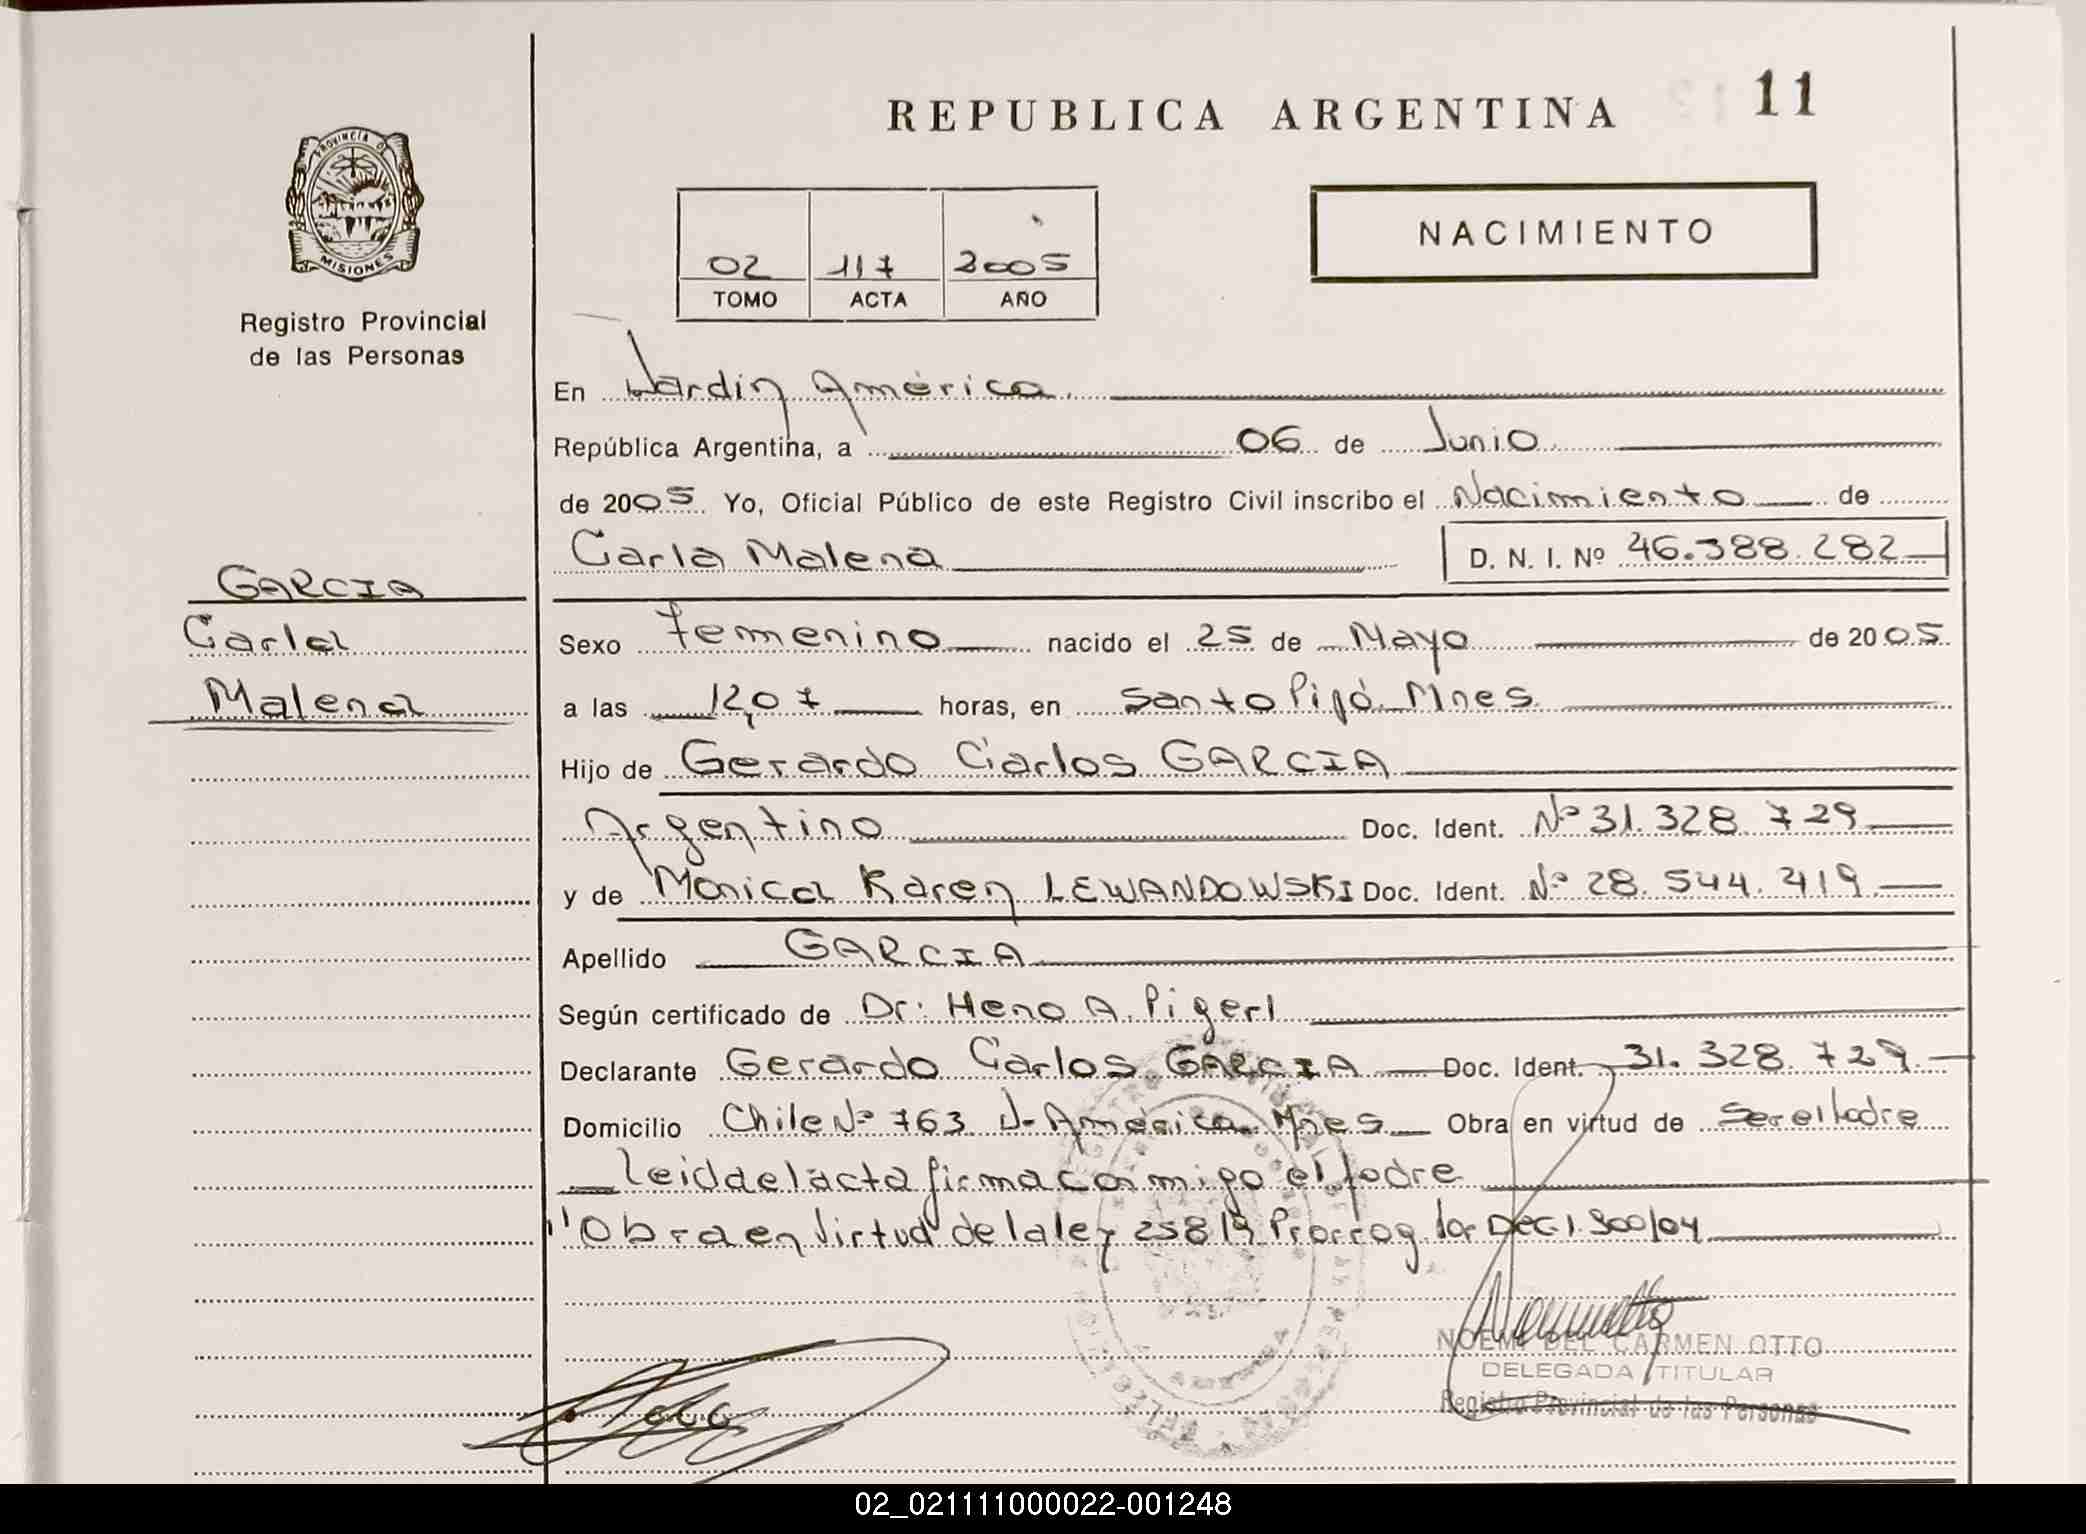 REPUBLICA ARGENTINA
11
PROVINCIA DE
MISIONES
Registro Provincial
de las Personas
02 117 2005
TOMO ACTA AÑO
NACIMIENTO
En Jardin América.
República Argentina, a 06 de Junio
de 2005 Yo, Oficial Público de este Registro Civil inscribo el Nacimiento de
Carla Malena D. N. I. Nº 46.388.282
GARCIA
Carla
Malena
Sexo Femenino nacido el 25 de Mayo de 2005
a las 12,07 horas, en Santo Pipó. Mnes.
Hijo de Gerardo Carlos GARCIA
Argentino Doc. Ident. Nº 31.328.729
y de Monica Karen LEWANDOWSKI Doc. Ident. Nº 28.544.219
Apellido GARCIA
Según certificado de Dr: Heno A. Pigerl
Declarante Gerardo Carlos GARCIA Doc. Ident. 31.328.729
Domicilio Chile Nº 763 J. América Mnes Obra en virtud de Ser el Padre
Leida el acta firma conmigo el padre
"Obra en virtud de la ley 25819 Prorrog. por Dec 1.900/04
NOEMI DEL CARMEN OTTO
DELEGADA TITULAR
Registro Provincial de las Personas
02_021111000022-001248